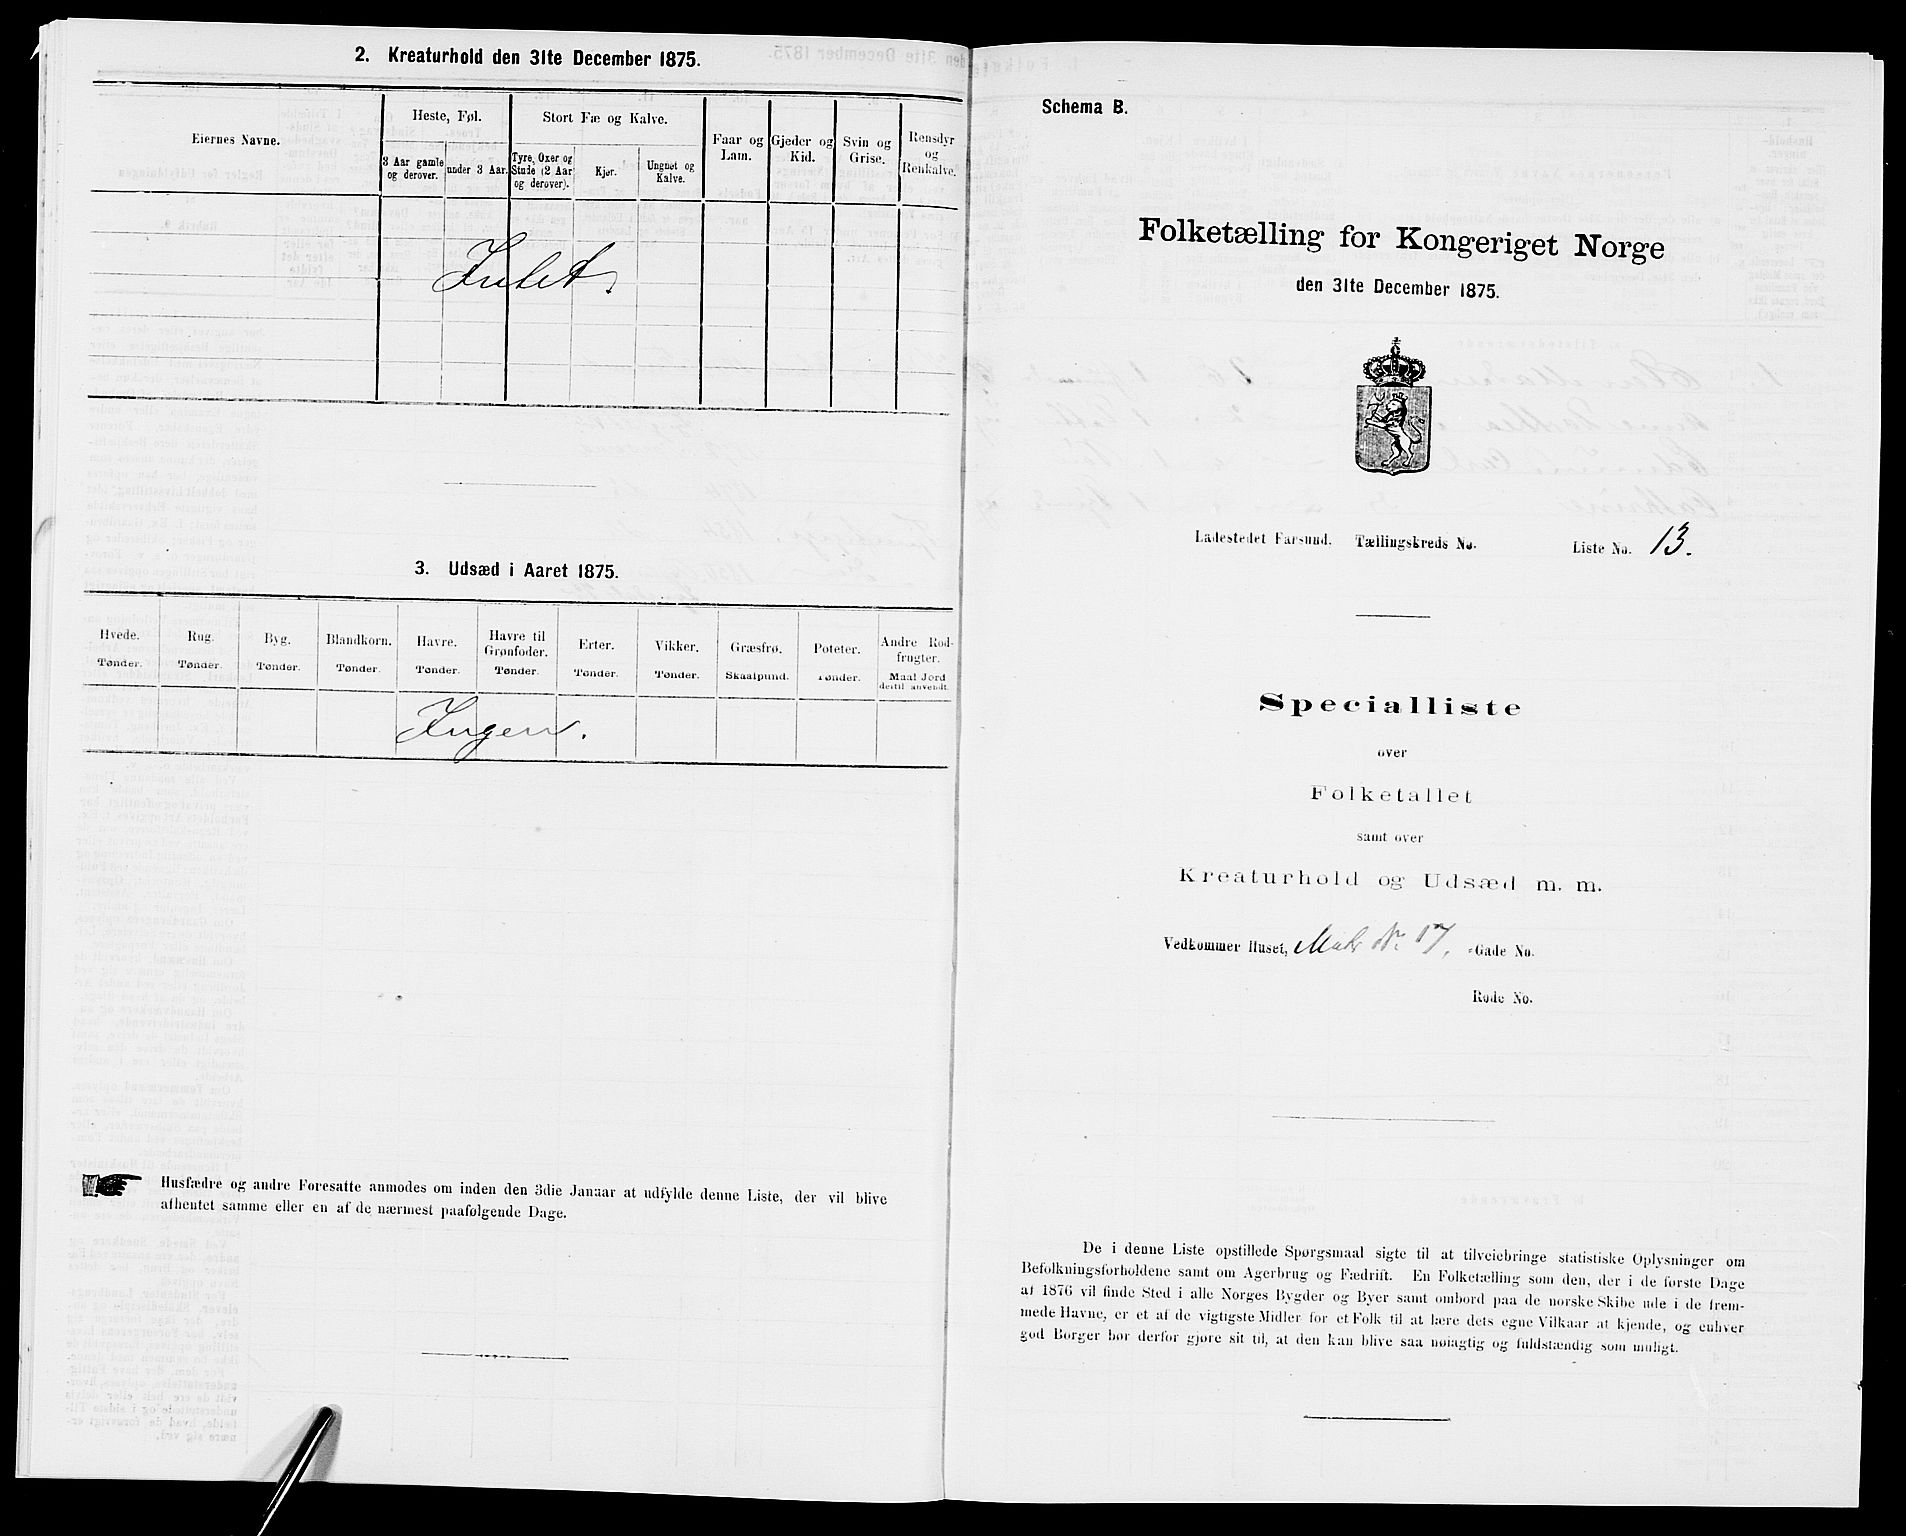 2. Kreaturhold den 31te December 1875.
Eiernes Navne.
Heste, Føl.
Stort Fæ og Kalve.
Faar og
Lam.
Gjeder og
Kid.
Svin og
Grise.
Rensdyr
og
Renkalve.
3 Aar gamle
og derover.
under 3 Aar.
Tyre, Oxer og
Stude (2 Aar
og derover).
Kjør.
Ungnøt og
Kalve.
Intet.
3. Udsæd i Aaret 1875.
Hvede.
Rug.
Byg.
Blandkorn.
Havre.
Havre til
Grønfoder.
Erter.
Vikker.
Græsfrø.
Poteter.
Andre Rod-
frugter.
Tønder.
Tønder.
Tønder.
Tønder.
Tønder.
Tønder.
Tønder.
Tønder.
Skaalpund.
Tønder.
Maal Jord
dertil anvendt.
Ingen.
Husfædre og andre Foresatte anmodes om inden den 3die Januar at udfylde denne Liste, der vil blive
afhentet samme eller en af de nærmest paafølgende Dage.
Schema B.
Folketælling for Kongeriget Norge
den 31te December 1875.
Ladestedet Farsund. Tællingskreds No. Liste No. 13.
Specialliste
over
Folketallet
samt over
Kreaturhold og Udsæd m. m.
Vedkommer Huset, Matr No. 17, -Gade No.
Rode No.
De i denne Liste opstillede Spørgsmaal sigte til at tilveiebringe statistiske Oplysninger om
Befolkningsforholdene samt om Agerbrug og Fædrift. En Folketælling som den, der i de første Dage
af 1876 vil finde Sted i alle Norges Bygder og Byer samt ombord paa de norske Skibe ude i de frem-
mede Havne, er et af de vigtigste Midler for et Folk til at lære dets egne Vilkaar at kjende, og enhver
god Borger bør derfor gjøre sit til, at den kan blive saa nøiagtig og fuldstændig som muligt.